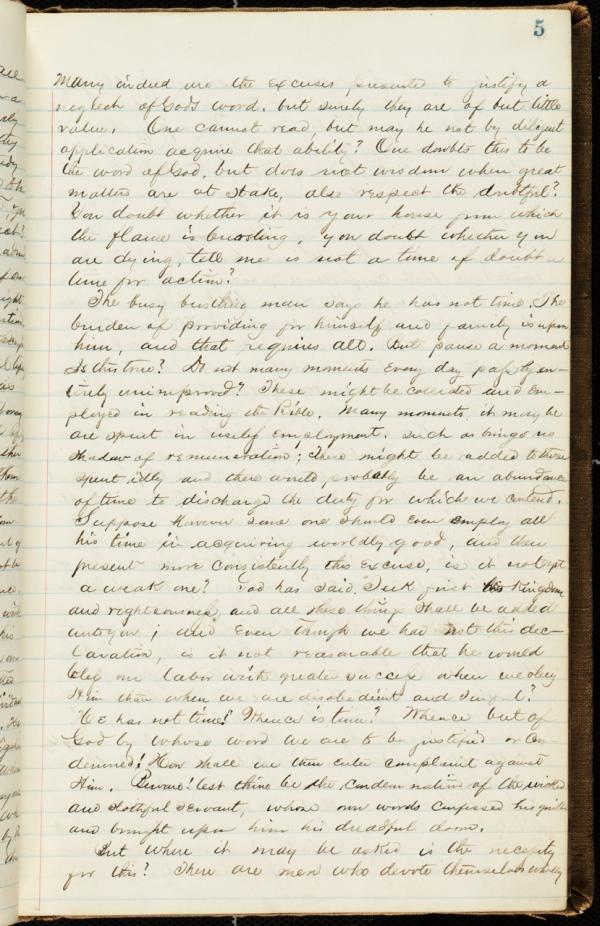 5
Many indeed are the excuses presented to justify a
neglect of God's word, but surely they are of but little
value. One cannot read, but may he not by diligent
application acquire that ability? One doubts this to be
the word of God, but does not wisdom when great
matters are at stake, also respect the doubtful?
You doubt whether it is your house from which
the flame is bursting, you doubt whether you
are dying, tell me is not a time of doubt a
time for action?
The busy bustling man says he has not time. The
burden of providing for himself and family is upon
him, and that requires all. But pause a moment
Is this true? Do not many moments every day pass by en-
tirely unimproved? These might be collected and em-
ployed in reading the Bible. Many moments it may be
are spent in useless employment, such as brings no
shadow of remuneration; these might be added to those
spent idly and there would probably be an abundance
of time to discharge the duty for which we contend.
Suppose however some one should even employ all
his time in acquiring worldly good, and then
present more consistently this excuse, is it not yet
a weak one? God has said, Seek first his Kingdom
and righteousness, and all these things shall be added
unto you; and even though we had not this dec-
laration, is it not reasonable that he would
bless our labor with greater success when we obey
Him than when we are disobedient and sinful?
He has not time! Whence is time? Whence but of
God by whose word we are to be justified or con-
demned! How shall we then enter complaint against
Him. Beware! lest thine be the condemnation of the wicked
and slothful servant, whose own words confessed his guilt
and brought upon him his dreadful doom.
But where it may be asked is the necessity
for this? There are men who devote themselves wholly